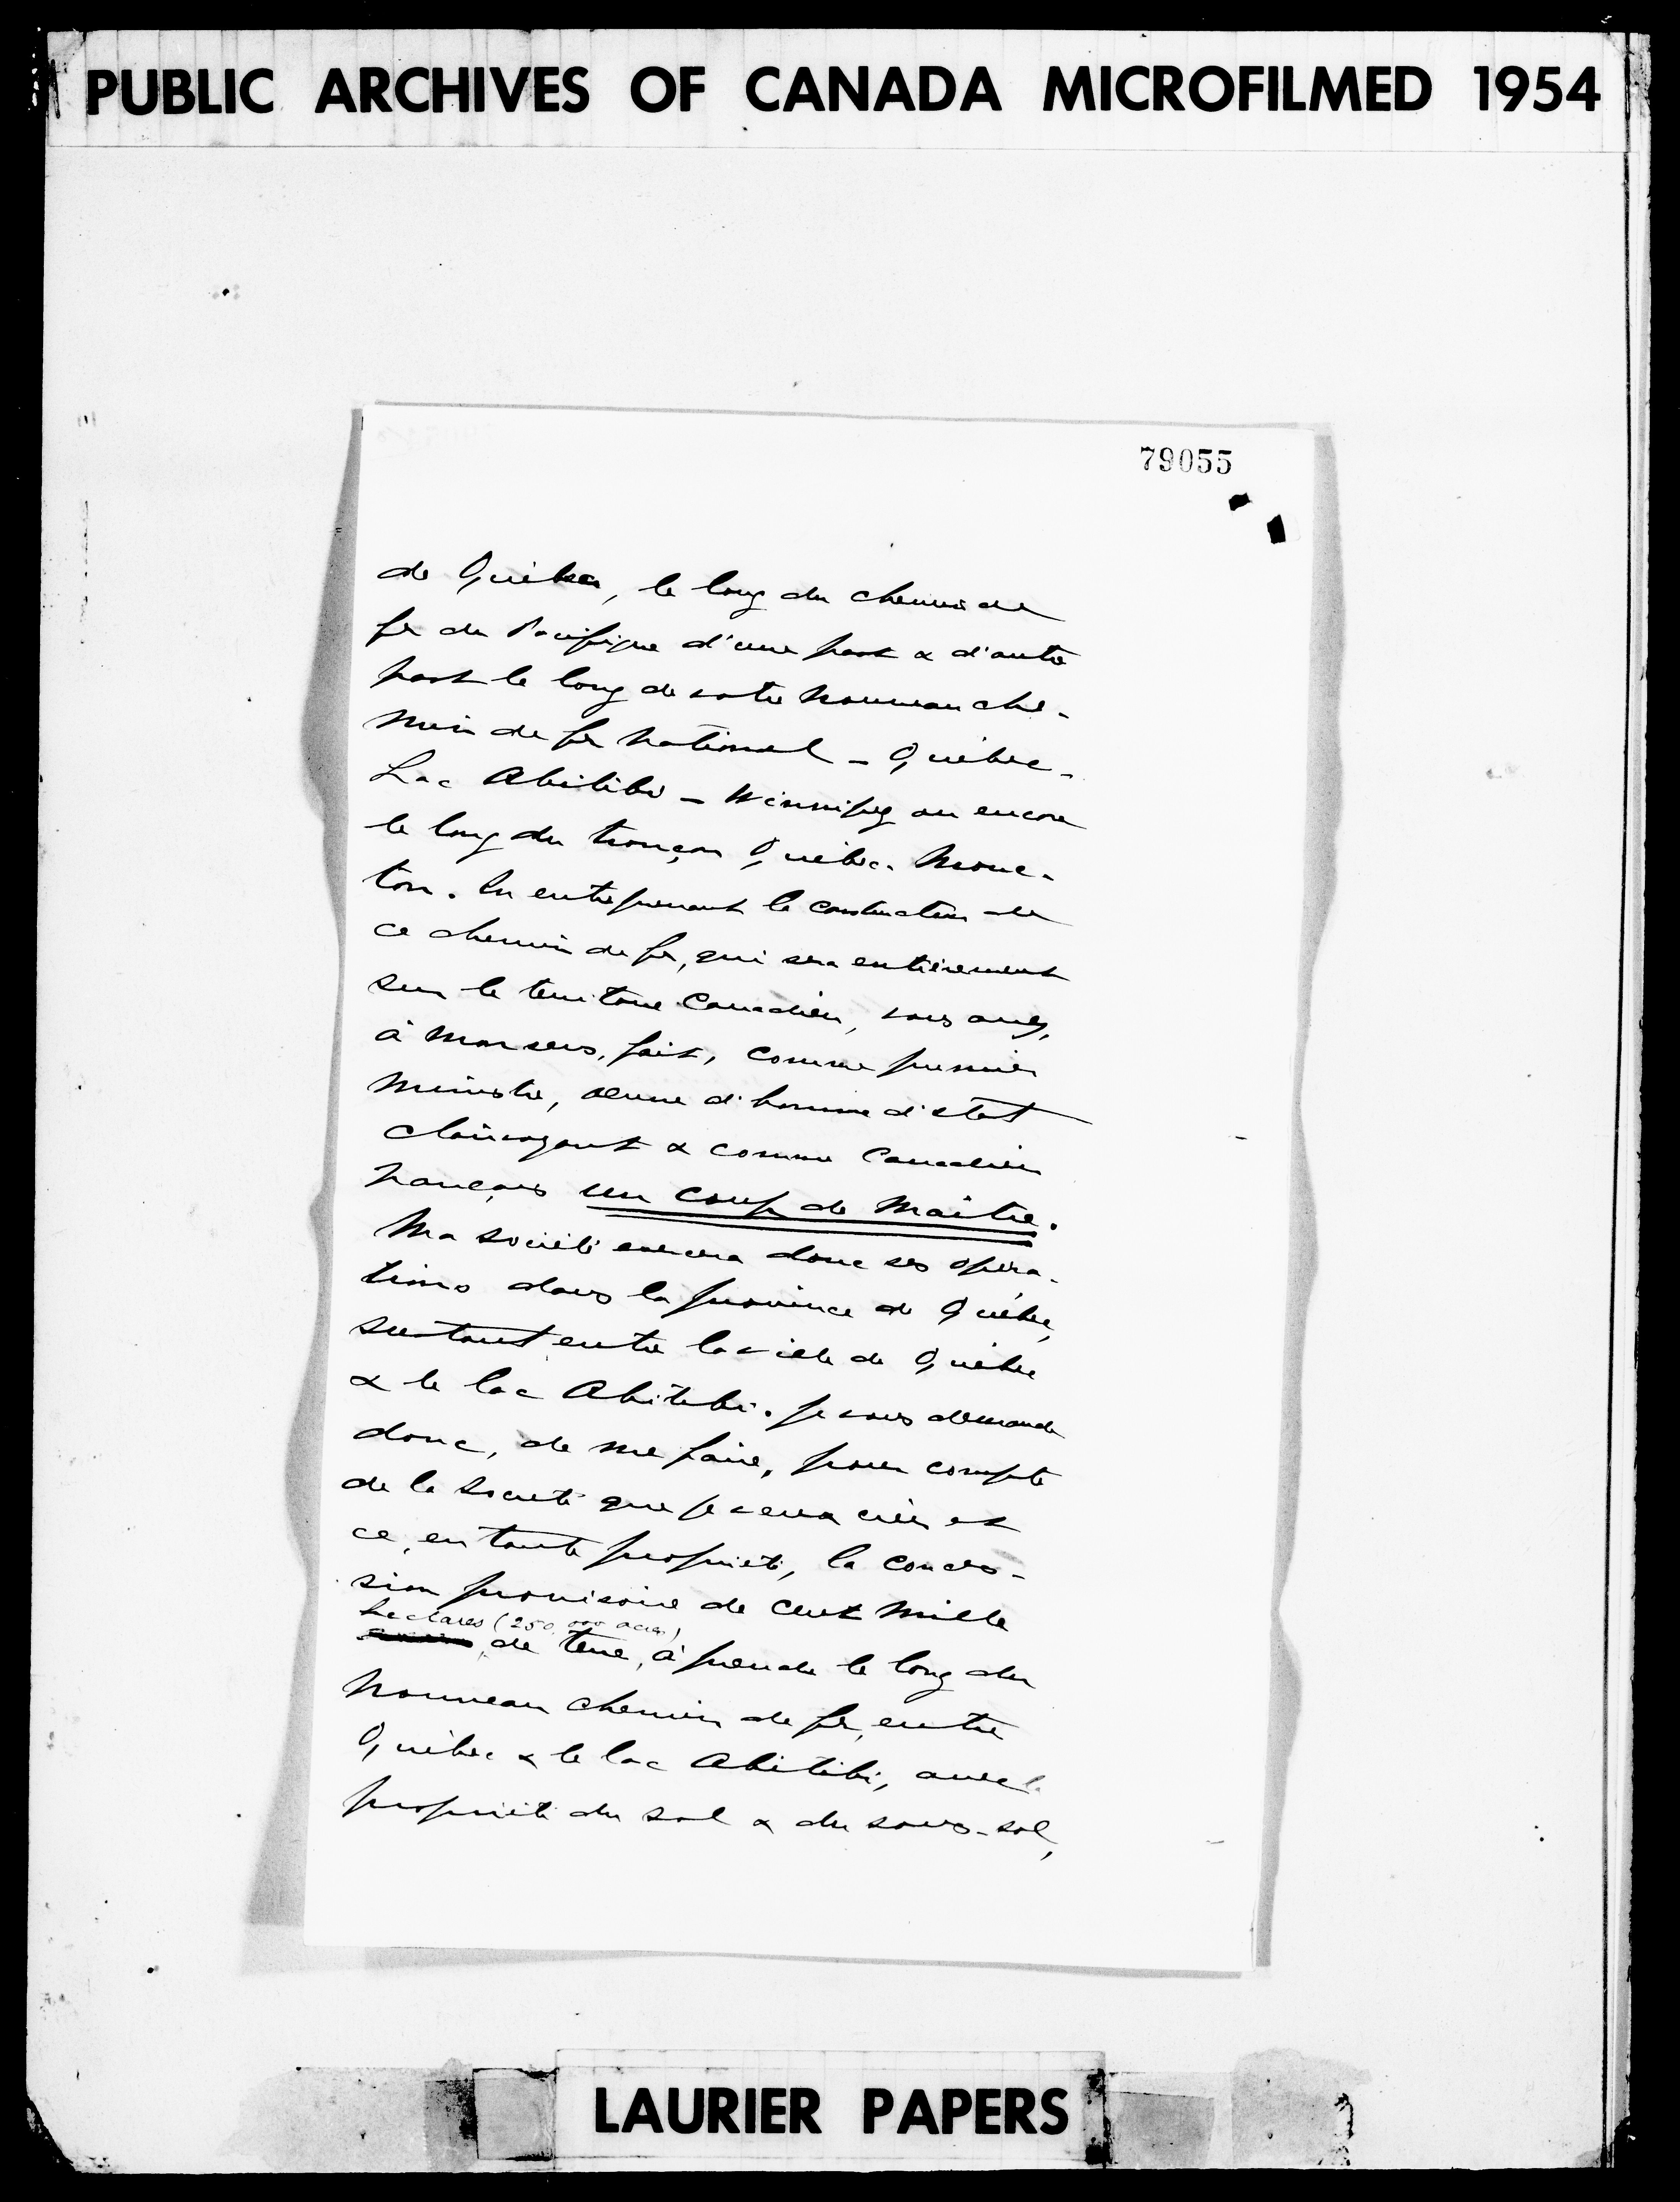 PUBLIC ARCHIVES OF CANADA MICROFILMED 1954
79055
de Québec, le long du chemin de
fer du Pacifique d'une part & d'autre
part le long de votre nouveau che-
min de fer national - Québec -
Lac Abitibi - Winnipeg ou encore
le long du tronçon Québec - Monc-
ton. En entreprenant la construction de
ce chemin de fer, qui sera entièrement
sur le territoire Canadien, vous avez,
à mon sens, fait, comme premier
ministre, œuvre d'homme d'état
clairvoyant & comme Canadien
français un coup de maître.
Ma société exercera donc ses opéra-
tions dans la province de Québec,
surtout entre la ville de Québec
& le lac Abitibi. Je vous demande
donc, de me faire, pour compte
de la société que je verrai créer et
ce, en toute propriété, la conces-
sion provisoire de cent mille
hectares (250.000 acres)
de terre, à prendre le long du
nouveau chemin de fer, entre
Québec & le lac Abitibi, avec la
propriété du sol & du sous-sol,
LAURIER PAPERS